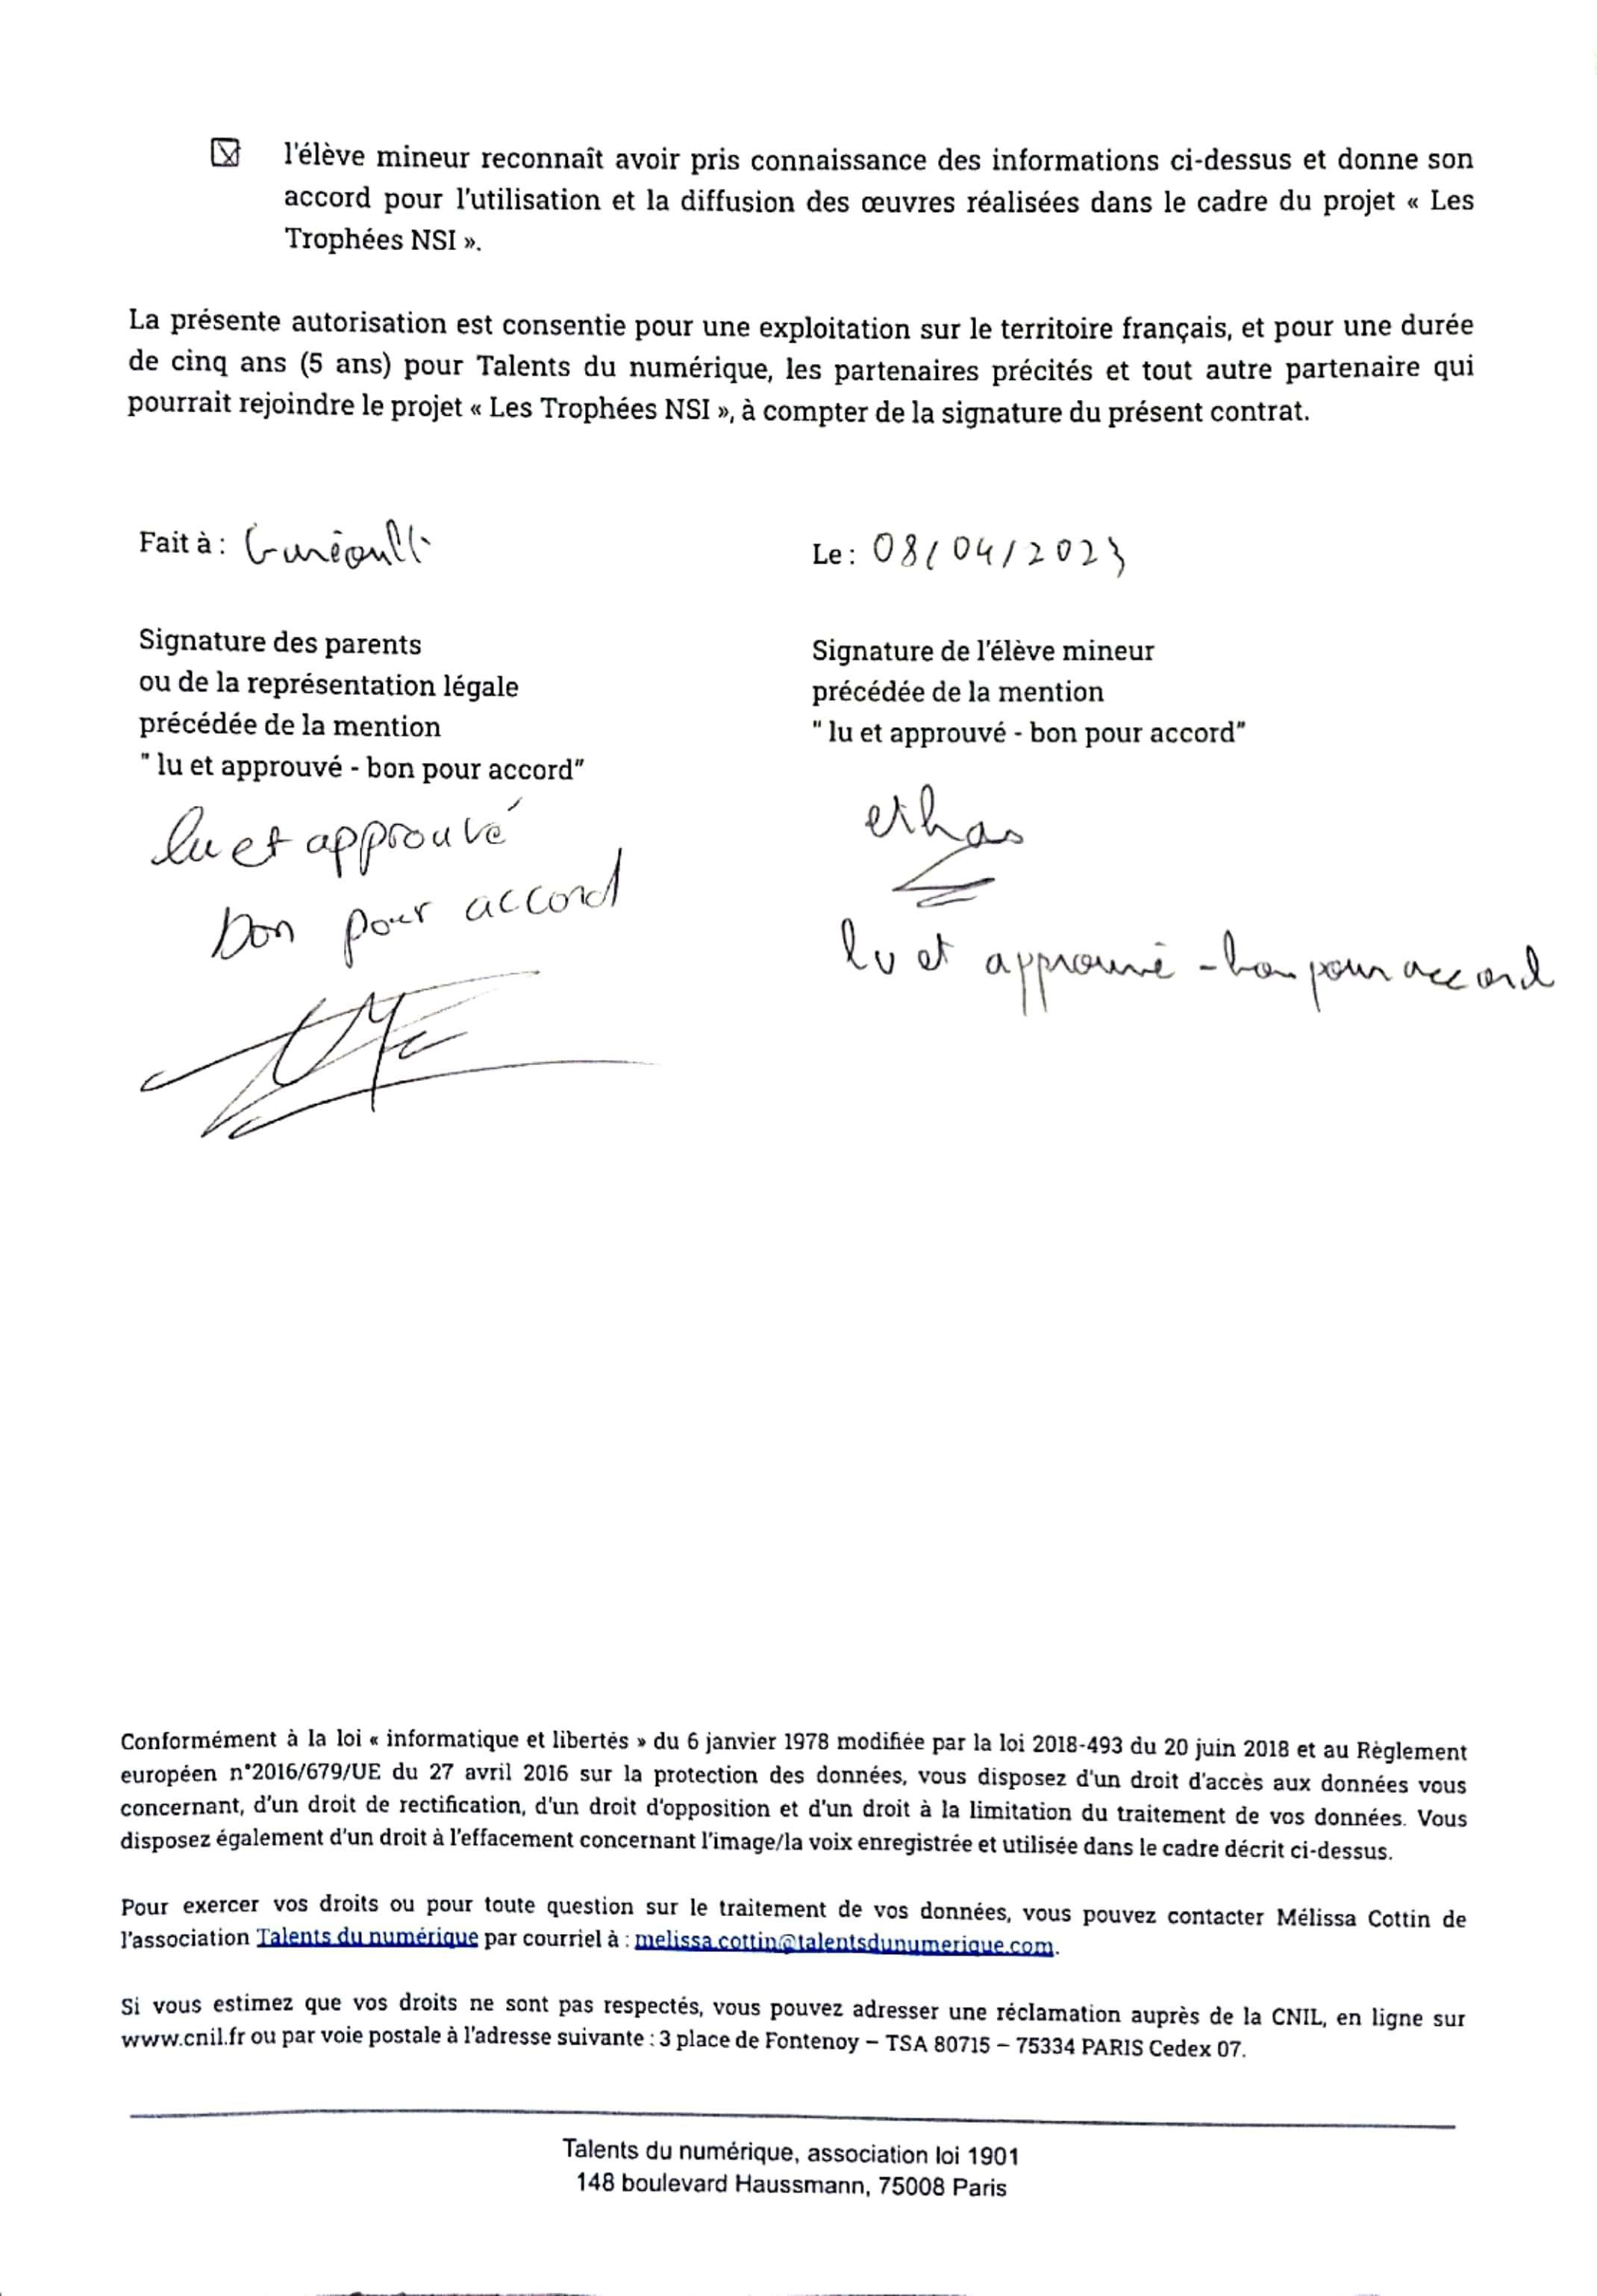 l'élève mineur reconnaît avoir pris connaissance des informations ci-dessus et donne son
accord pour l'utilisation et la diffusion des œuvres réalisées dans le cadre du projet « Les
Trophées NSI ».
La présente autorisation est consentie pour une exploitation sur le territoire français, et pour une durée
de cinq ans (5 ans) pour Talents du numérique, les partenaires précités et tout autre partenaire qui
pourrait rejoindre le projet « Les Trophées NSI », à compter de la signature du présent contrat.
Fait à :
Le : 08/04/2023
Signature des parents
ou de la représentation légale
précédée de la mention
" lu et approuvé - bon pour accord"
Signature de l'élève mineur
précédée de la mention
" lu et approuvé - bon pour accord"
lu et approuvé
bon pour accord
lu et approuvé - bon pour accord
Conformément à la loi « informatique et libertés » du 6 janvier 1978 modifiée par la loi 2018-493 du 20 juin 2018 et au Règlement
européen n°2016/679/UE du 27 avril 2016 sur la protection des données, vous disposez d'un droit d'accès aux données vous
concernant, d'un droit de rectification, d'un droit d'opposition et d'un droit à la limitation du traitement de vos données. Vous
disposez également d'un droit à l'effacement concernant l'image/la voix enregistrée et utilisée dans le cadre décrit ci-dessus.
Pour exercer vos droits ou pour toute question sur le traitement de vos données, vous pouvez contacter Mélissa Cottin de
l'association Talents du numérique par courriel à : melissa.cottin@talentsdunumerique.com.
Si vous estimez que vos droits ne sont pas respectés, vous pouvez adresser une réclamation auprès de la CNIL, en ligne sur
www.cnil.fr ou par voie postale à l'adresse suivante : 3 place de Fontenoy – TSA 80715 – 75334 PARIS Cedex 07.
Talents du numérique, association loi 1901
148 boulevard Haussmann, 75008 Paris